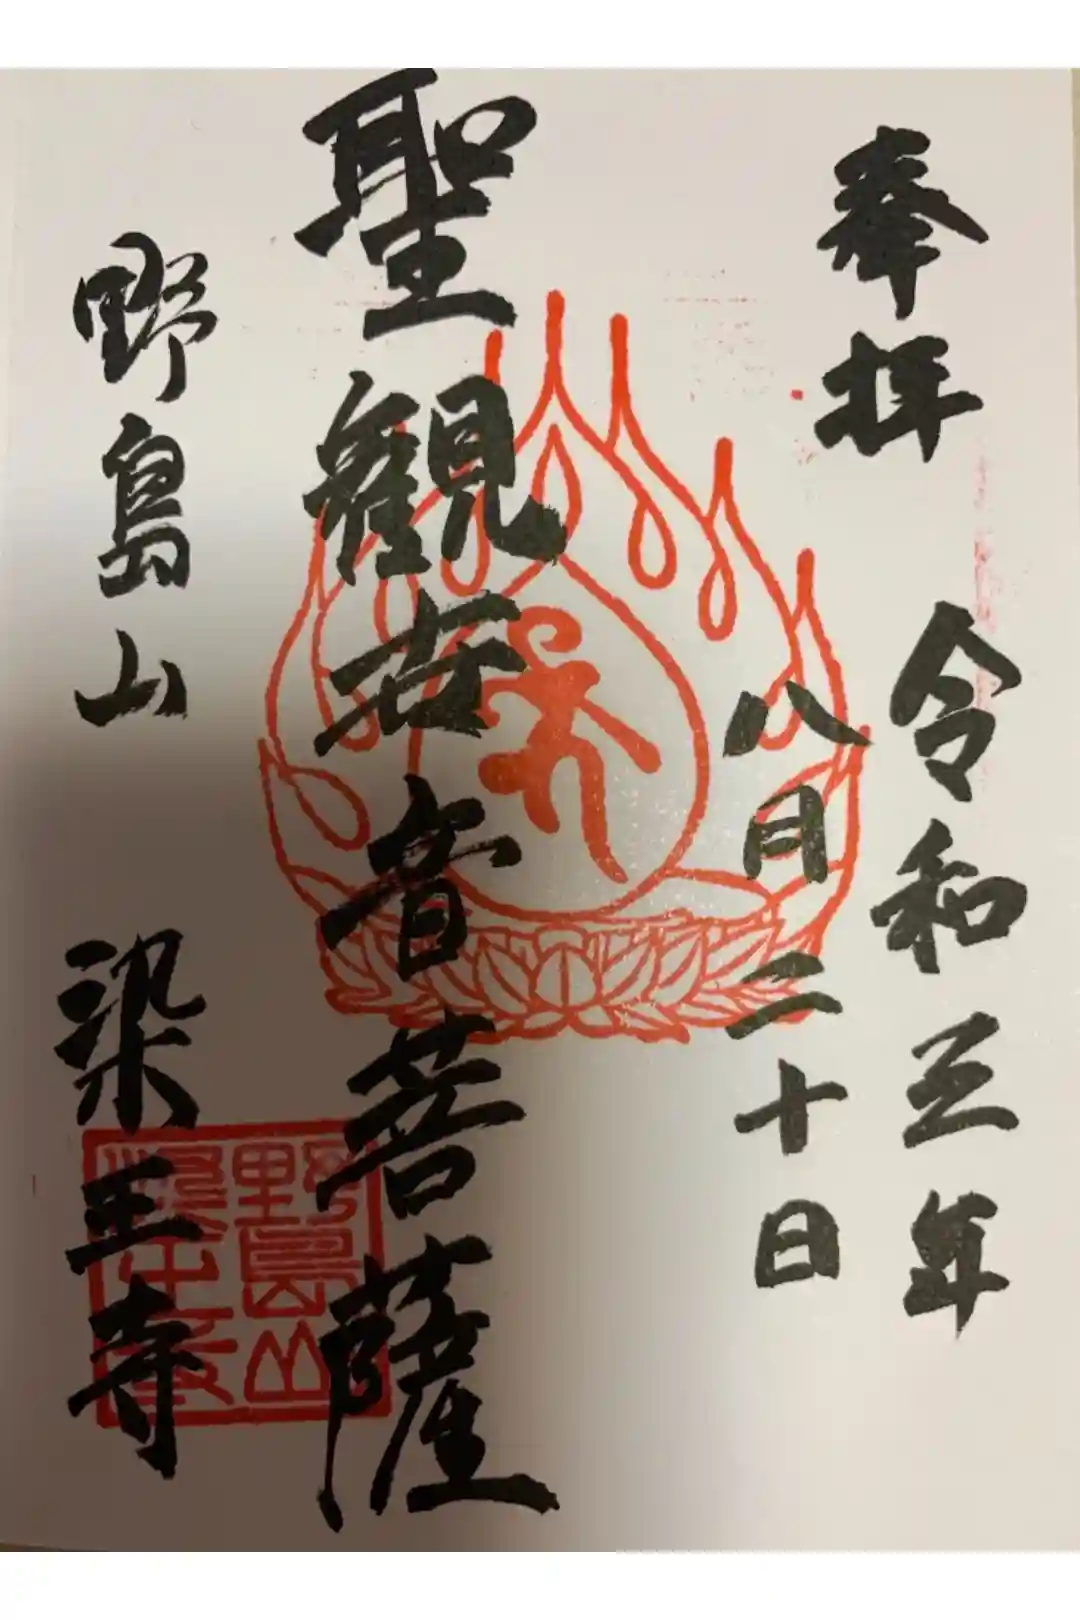 奉拝
令和三年
八月二十日
聖観世音菩薩
野島山
染王寺
野島山
染王寺